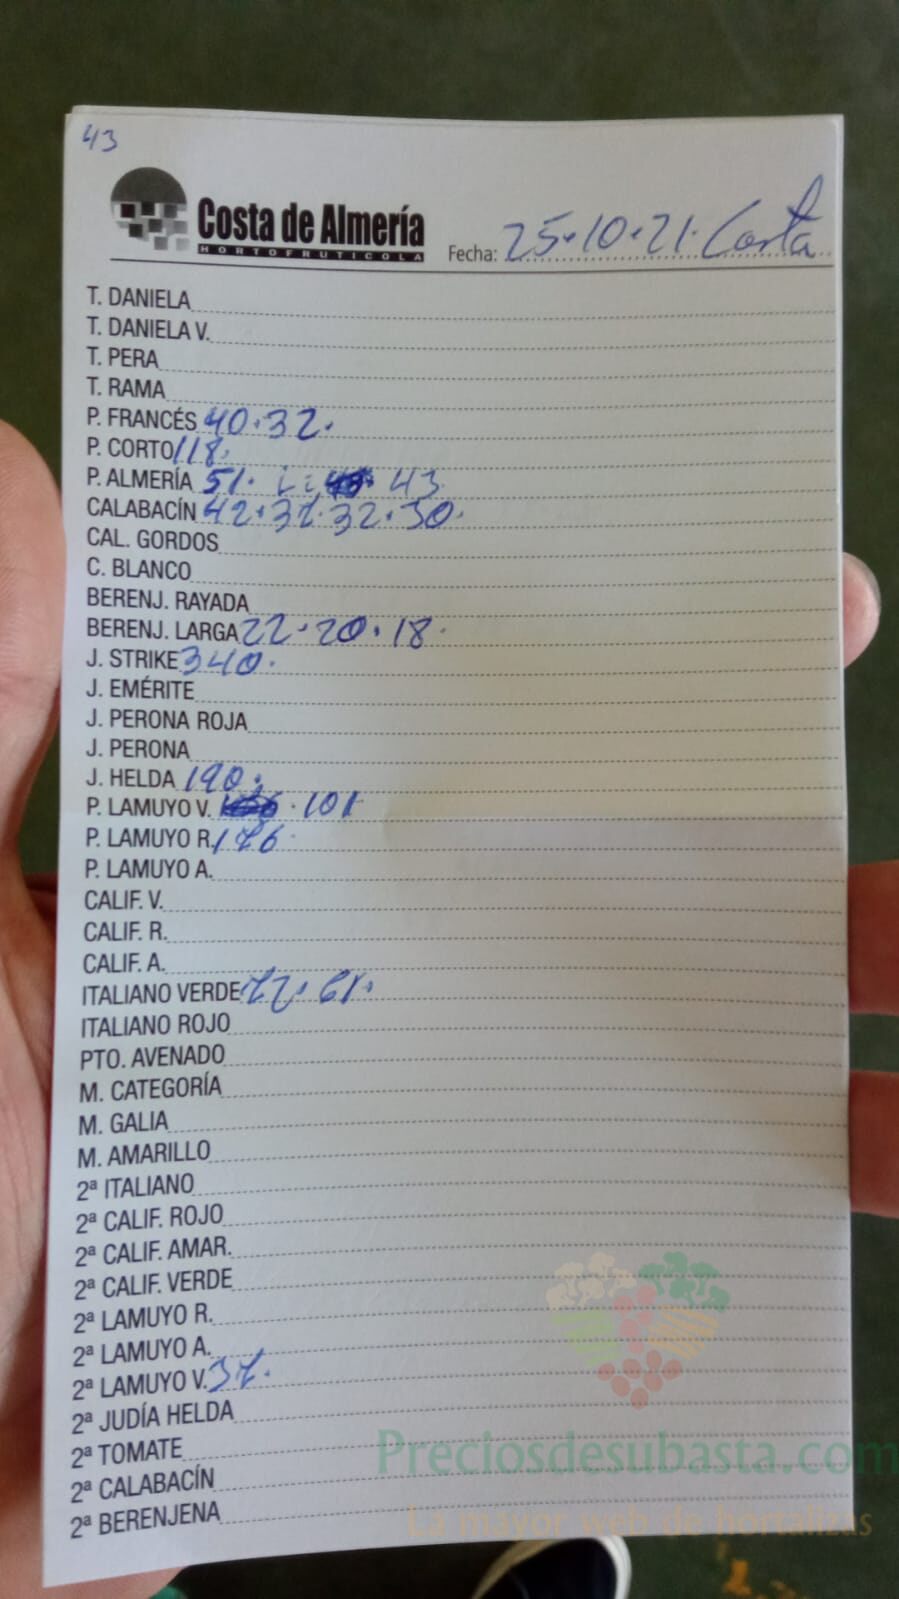 43
Costa de Almería
HORTOFRUTICOLA
Fecha: 25·10·21· Costa
T. DANIELA
T. DANIELA V.
T. PERA
T. RAMA
P. FRANCÉS 40·32·
P. CORTO 118·
P. ALMERÍA 51· 43
CALABACÍN 42·37·32·30·
CAL. GORDOS
C. BLANCO
BERENJ. RAYADA
BERENJ. LARGA 22·20·18·
J. STRIKE 340·
J. EMÉRITE
J. PERONA ROJA
J. PERONA
J. HELDA 190·
P. LAMUYO V. · 101
P. LAMUYO R. 176·
P. LAMUYO A.
CALIF. V.
CALIF. R.
CALIF. A.
ITALIANO VERDE 72· 61·
ITALIANO ROJO
PTO. AVENADO
M. CATEGORÍA
M. GALIA
M. AMARILLO
2ª ITALIANO
2ª CALIF. ROJO
2ª CALIF. AMAR.
2ª CALIF. VERDE
2ª LAMUYO R.
2ª LAMUYO A.
2ª LAMUYO V. 37·
2ª JUDÍA HELDA
2ª TOMATE
2ª CALABACÍN
2ª BERENJENA
Preciosdesubasta.com
La mayor web de hortalizas